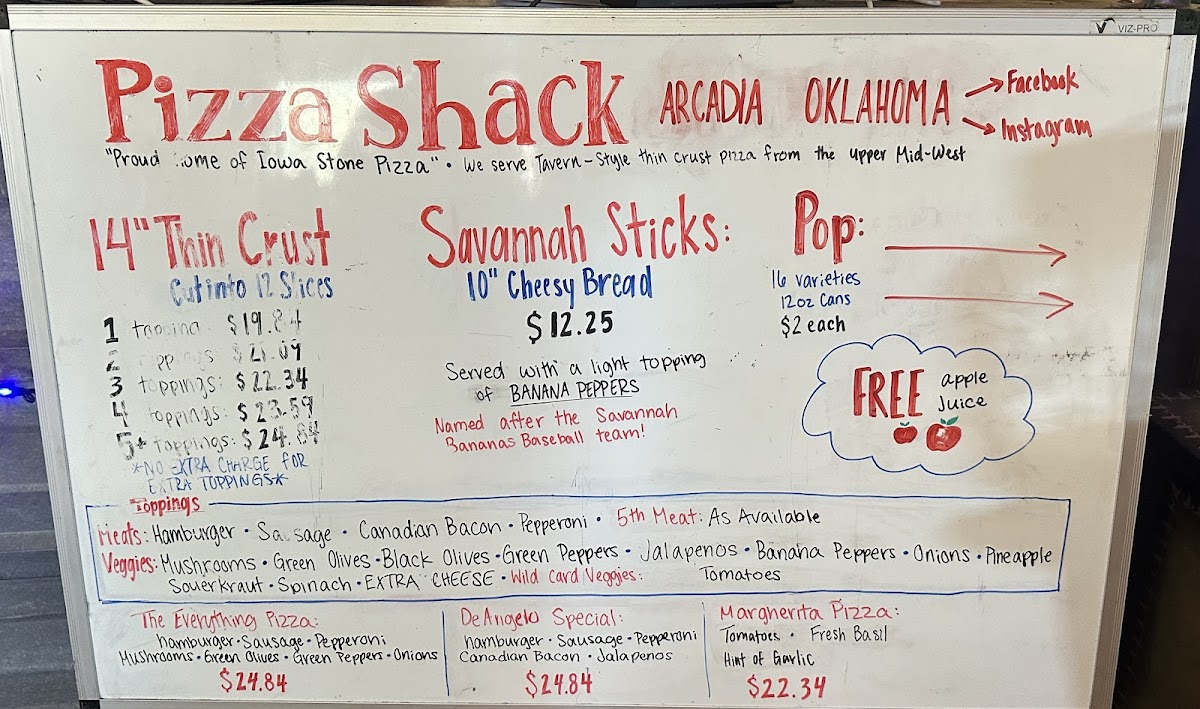 VIZ-PRO
Pizza Shack ARCADIA OKLAHOMA → Facebook
→ Instagram
"Proud ome of Iowa Stone Pizza" • We serve Tavern-Style thin crust pizza from the upper Mid-West
14" Thin Crust
Cut into 12 Slices
1 topping: $19.84
2 toppings $21.09
3 toppings: $22.34
4 toppings: $23.59
5+ toppings: $24.84
*NO EXTRA CHARGE FOR
EXTRA TOPPINGS*
Savannah Sticks:
10" Cheesy Bread
$12.25
Served with a light topping
of BANANA PEPPERS
Named after the Savannah
Bananas Baseball team!
Pop:
16 varieties
12oz Cans
$2 each
FREE apple
juice
Toppings
Meats: Hamburger • Sausage • Canadian Bacon • Pepperoni • 5th Meat: As Available
Veggies: Mushrooms • Green Olives • Black Olives • Green Peppers • Jalapenos • Banana Peppers • Onions • Pineapple
Souerkraut • Spinach • EXTRA CHEESE • Wild Card Veggies: Tomatoes
The Everything Pizza:
hamburger • Sausage • Pepperoni
Mushrooms • Green Olives • Green Peppers • Onions
$24.84
DeAngelo Special:
hamburger • Sausage • Pepperoni
Canadian Bacon • Jalapenos
$24.84
Margherita Pizza:
Tomatoes • Fresh Basil
Hint of Garlic
$22.34